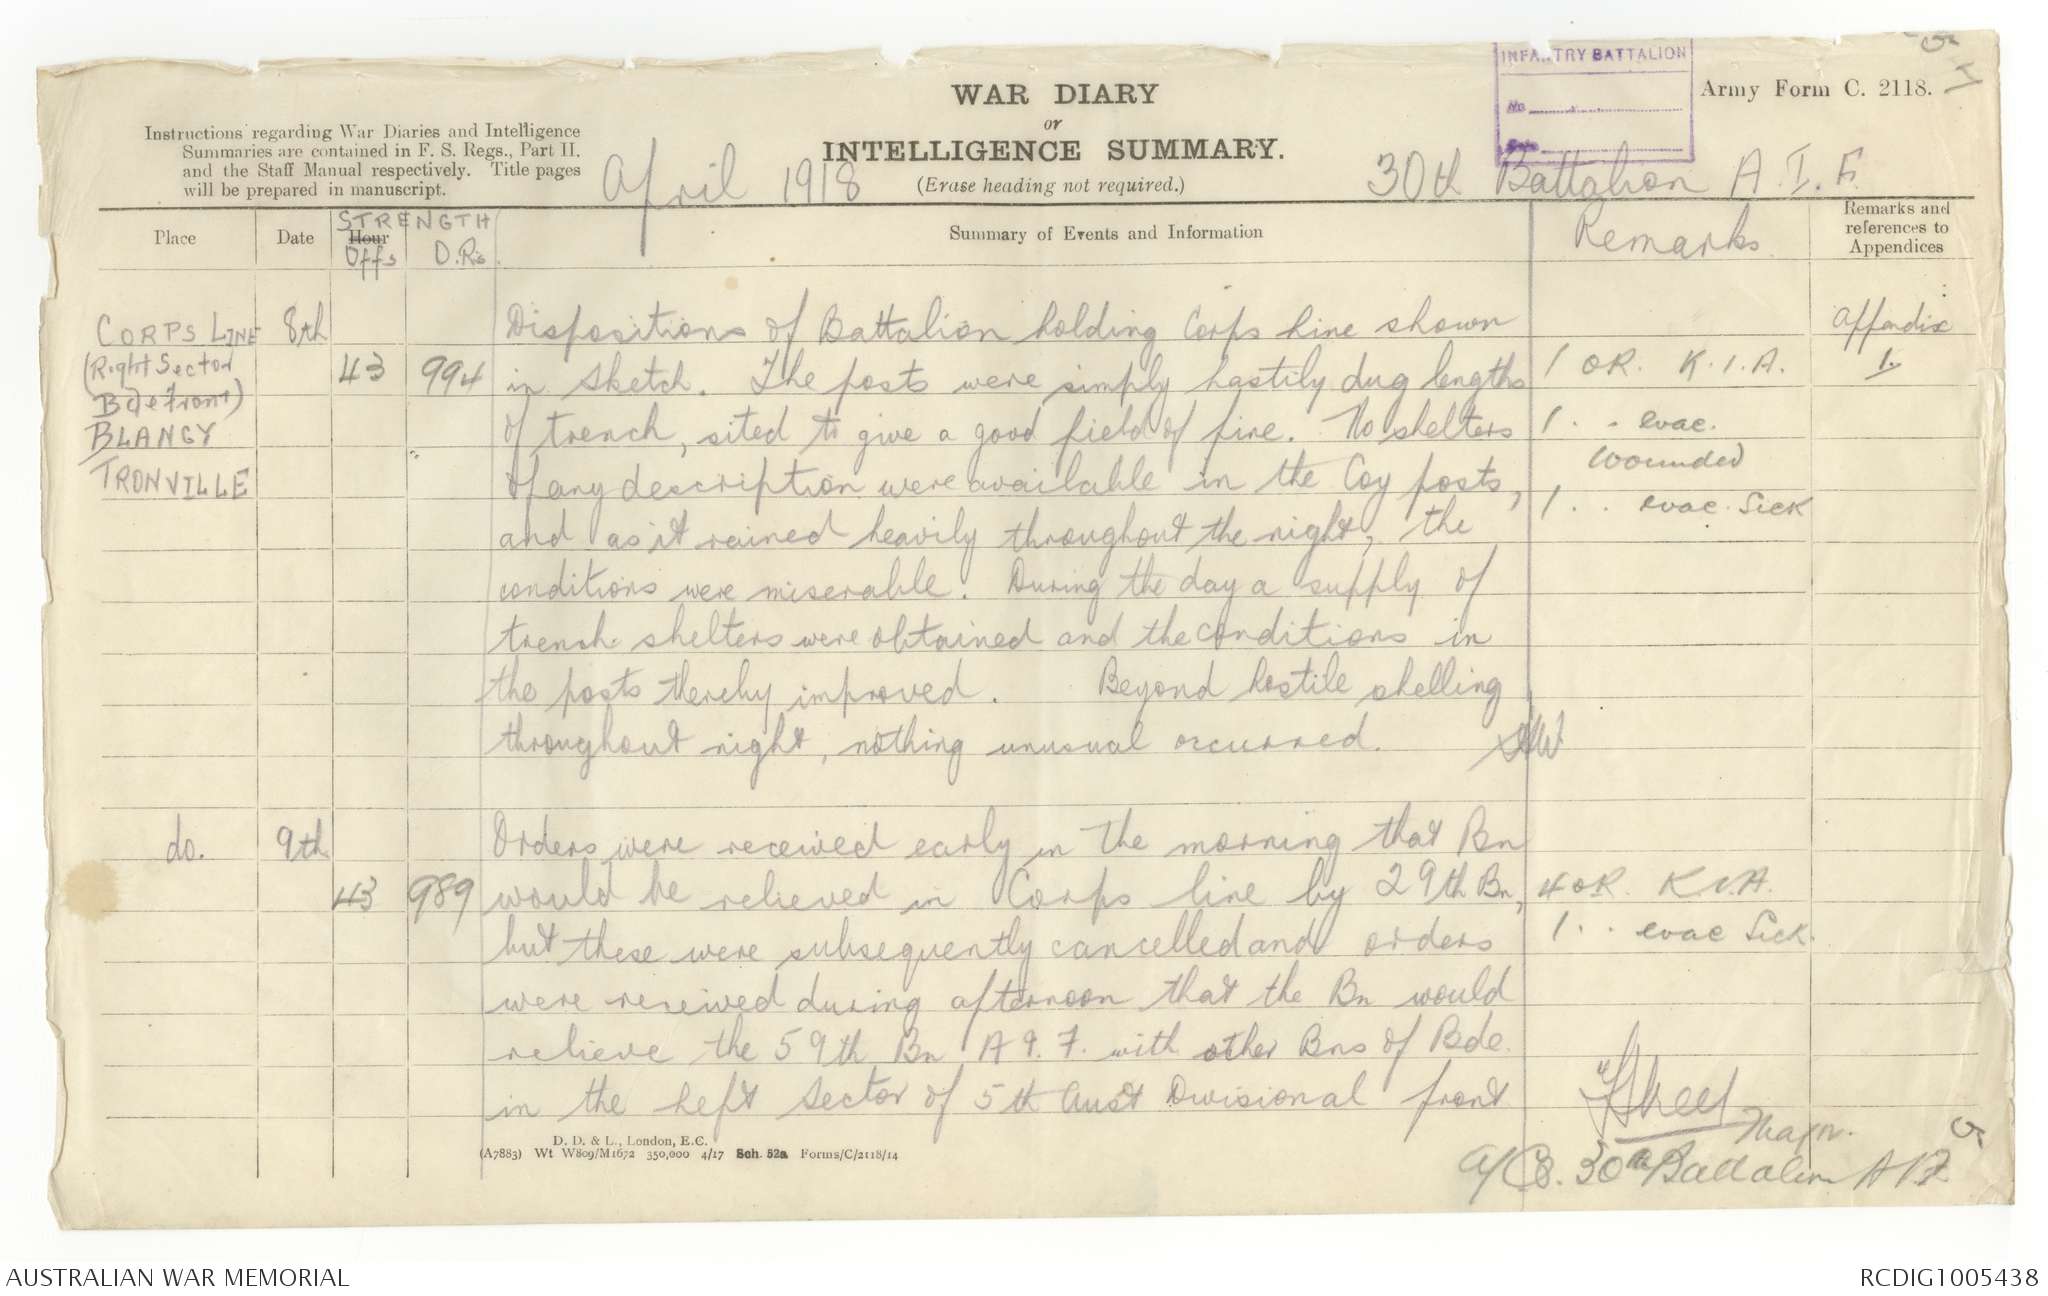 INFANTRY BATTALION
No.
Date
Army Form C. 2118.
5
WAR DIARY
or
INTELLIGENCE SUMMARY.
(Erase heading not required.)
Instructions regarding War Diaries and Intelligence
Summaries are contained in F. S. Regs., Part II.
and the Staff Manual respectively. Title pages
will be prepared in manuscript.
April 1918
30th Battalion A.I.F.
Place Date Hour STRENGTH Offs O.Rs Summary of Events and Information Remarks Remarks and
references to
Appendices
CORPS LINE 8th Dispositions of Battalion holding Corps Line shown Appendix
(Right Sector 43 994 in Sketch. The posts were simply hastily dug lengths 1 OR. K.I.A. 1.
Bde Front) of trench, sited to give a good field of fire. No shelters 1 . . evac.
BLANGY wounded
TRONVILLE of any description were available in the Coy posts, 1 . . evac. Sick
and as it rained heavily throughout the night, the
conditions were miserable. During the day a supply of
trench shelters were obtained and the conditions in
the posts thereby improved. Beyond hostile shelling
throughout night, nothing unusual occurred.
do. 9th Orders were received early in the morning that Bn
43 989 would be relieved in Corps line by 29th Bn, 4 OR. K.I.A.
but these were subsequently cancelled and orders 1 . . evac Sick.
were received during afternoon that the Bn would
relieve the 59th Bn A.I.F. with other Bns of Bde.
in the Left Sector of 5th Aust Divisional front
Major.
A/C.O. 30th Battalion AIF
5
D. D. & L., London, E.C.
(A7883) Wt W809/M1672 350,000 4/17 Sch. 52a Forms/C/2118/14
AUSTRALIAN WAR MEMORIAL
RCDIG1005438